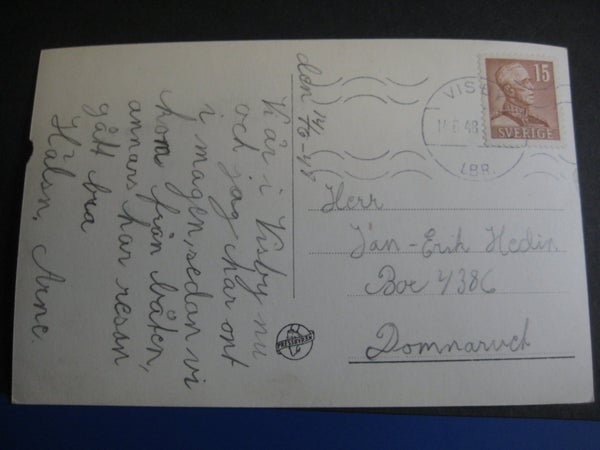 den 14/6-48
Vi är i Visby nu
och jag har ont
i magen, sedan vi
kom från båten,
annars har resan
gått bra
Hälsn. Arne.
15
SVERIGE
VIS
14.6.48
LBR.
Herr
Jan-Erik Hedin
Box 4386
Domnarvet
PRESSBYRÅN